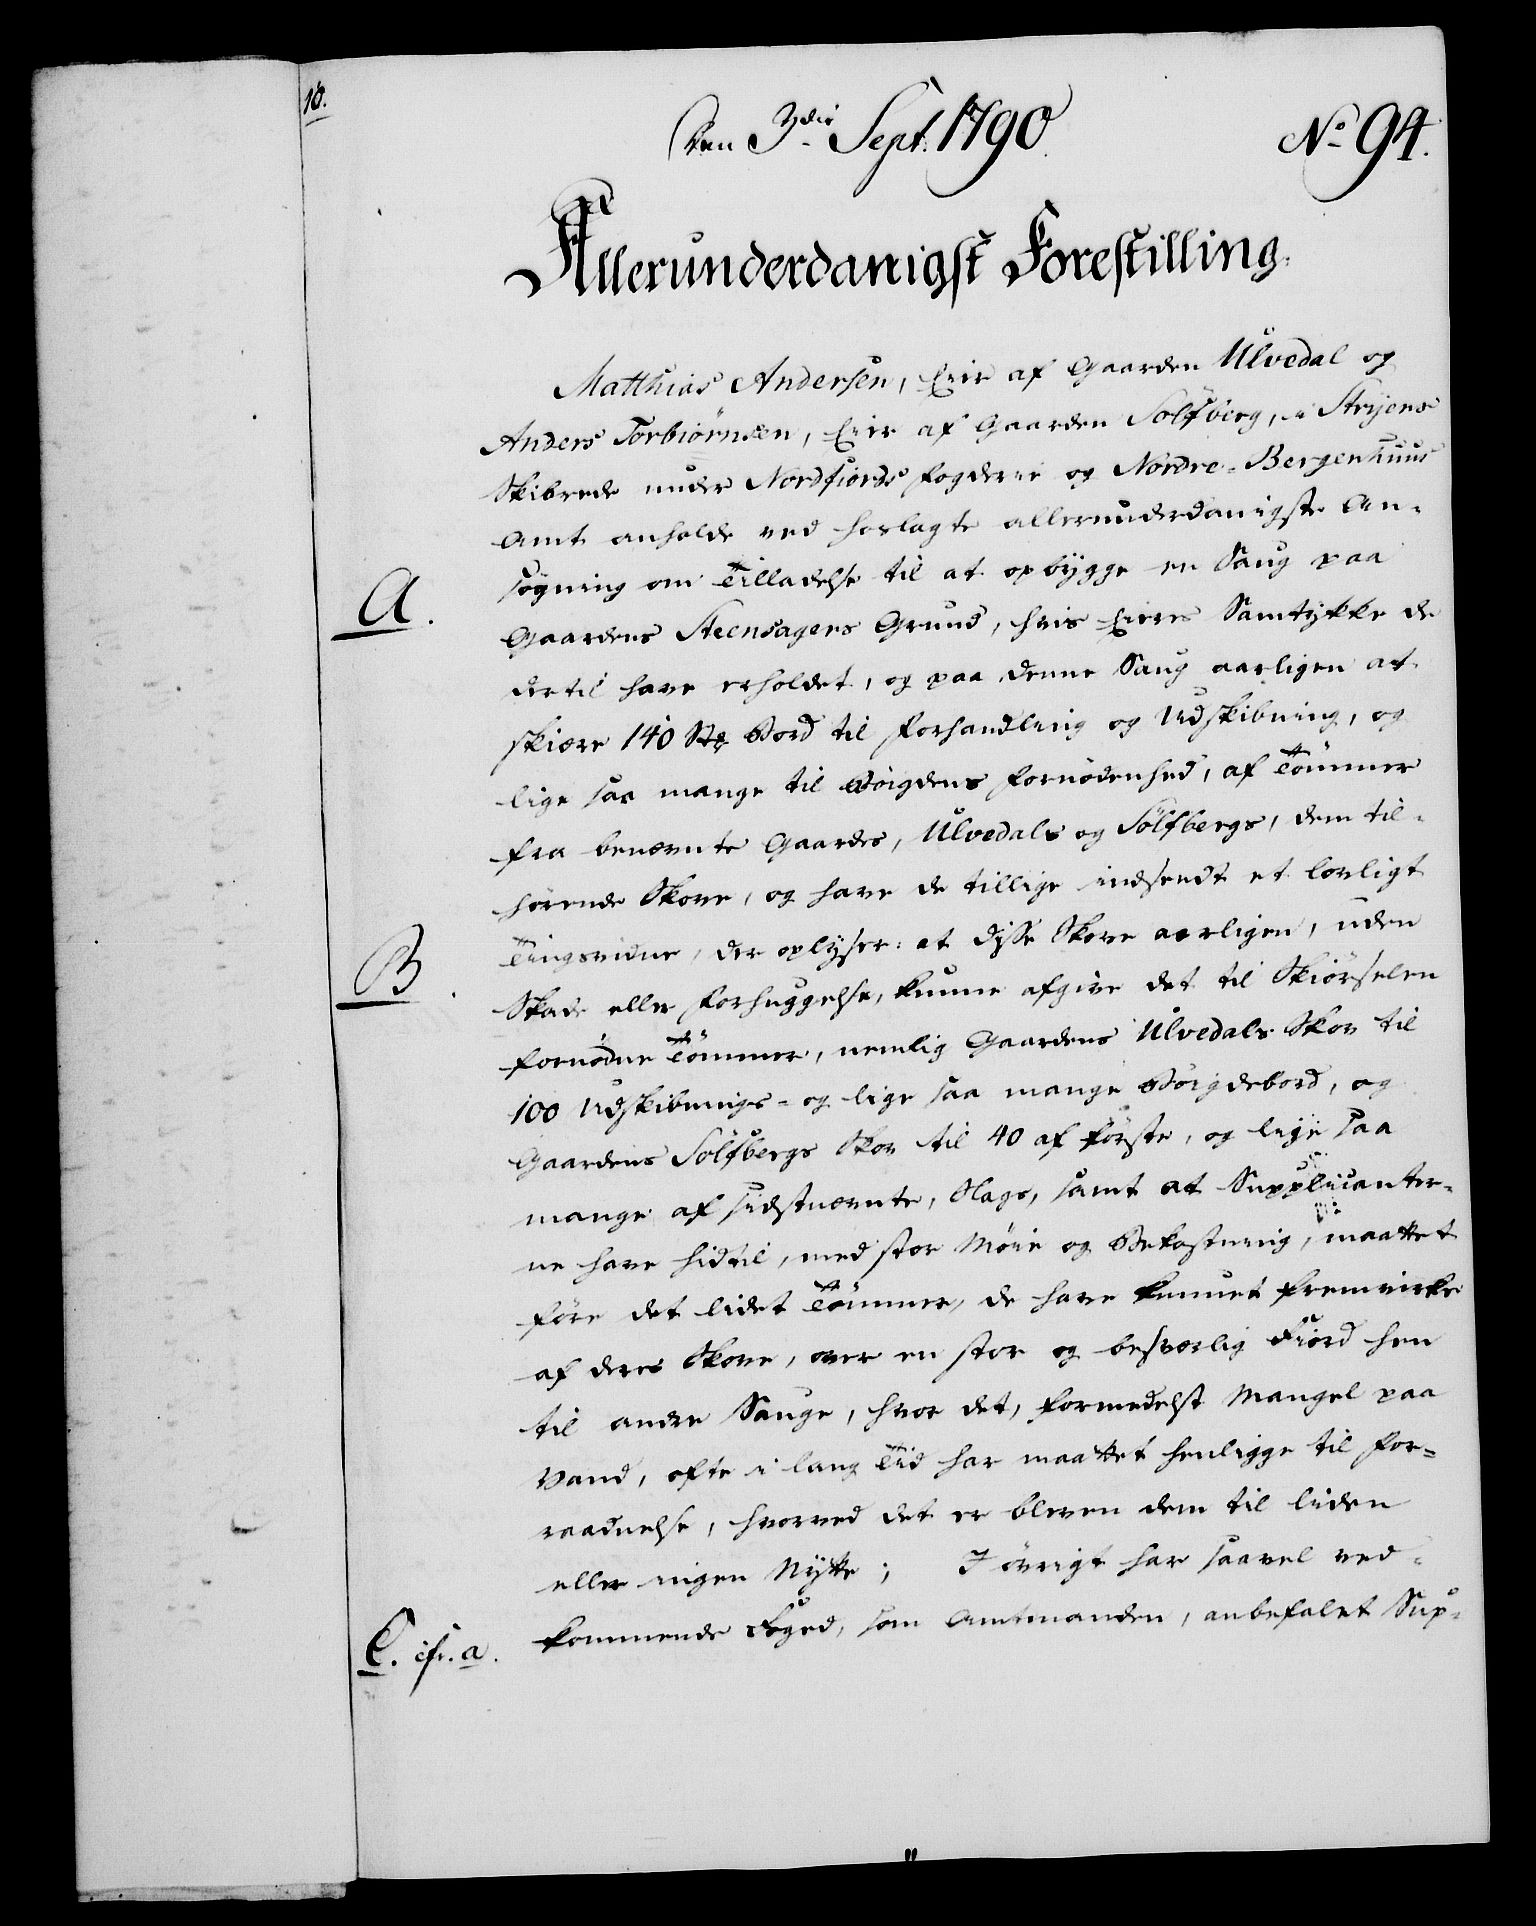 10.
Den 3die Sept. 1790.
No 94.
Allerunderdanigst Forestilling.
Matthias Andersen, Eier af Gaarden Ulvedal og
Anders Torbiørnsen, Eier af Gaarden Sölfberg, i Stryens
Skibrede under Nordfiords Fogderie og Nordre-Bergenhuus
Amt anholde ved hoslagte allerunderdanigste An-
A.
søgning om Tilladelse til at opbygge en Saug paa
Gaardens Steensagers Grund, hvis Eieres Samtykke de
dertil have erholdet, og paa denne Saug aarligen at
skiære 140 Bord til Forhandling og Udskibning, og
lige saa mange til Bøigdens Fornødenhed, af Tømmer
fra benævnte Gaardes, Ulvedals og Sölfbergs, dem til-
hørende Skove, og have de tillige indsendt et lovligt
B.
Tingsvidne, der oplyser: at disse Skove aarligen, uden
Skade eller Forhuggelse, kunne afgive det til Skiørselen
fornødne Tømmer, nemlig Gaardens Ulvedals Skov til
100 Udskibnings- og lige saa mange Bøigdebord, og
Gaardens Sölfbergs Skov til 40 af første, og lige saa
mange af sidstnævnte, Slags, samt at Supplicanter-
ne have hidtil, med stor Møie og Bekostning, maattet
føre det lidet Tømmer, de have kunnet fremvirke
af deres Skove, over en stor og besværlig Fiord hen
til andre Sauge, hvor det, formedelst Mangel paa
Vand, ofte i lang Tid har maattet henligge til For-
raadnelse, hvorved det er bleven dem til liden
eller ingen Nytte; I øvrigt har saavel ved-
C. cfr. a.
kommende Foged, som Amtmanden, anbefalet Sup-